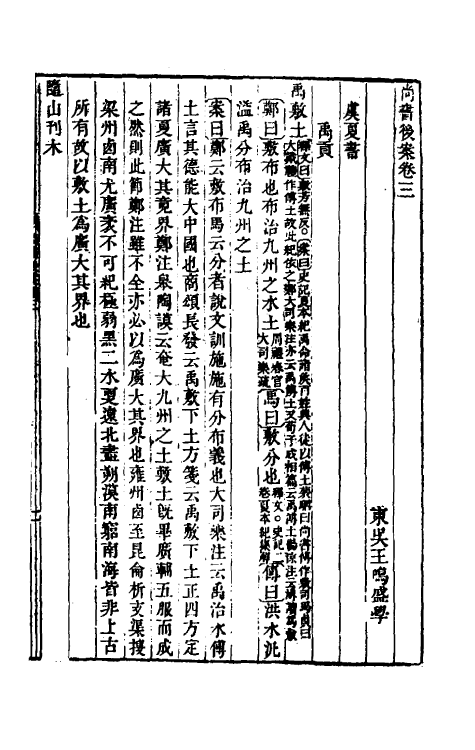 尚書後案卷三
東吳王鳴盛學
虞夏書
禹貢
禹敷土
鄭曰敷布也布治九州之水土周禮春官大司樂疏馬曰敷分也釋文○史記二卷夏本紀集解傳曰洪水汎
溢禹分布治九州之土
案曰鄭云敷布馬云分者說文訓施施有分布義也大司樂注云禹治水傅
土言其德能大中國也商頌長發云禹敷下土方箋云禹敷下土正四方定
諸夏廣大其竟界鄭注皋陶謨云奄大九州之土敷土旣畢廣輔五服而成
之然則此節鄭注雖不全亦必以爲廣大其界也雍州鹵至昆侖析支渠搜
梁州鹵南尤廣袤不可紀極弱黑二水夐遠北盡朔漠南窮南海皆非上古
所有故以敷土爲廣大其界也
隨山刊木